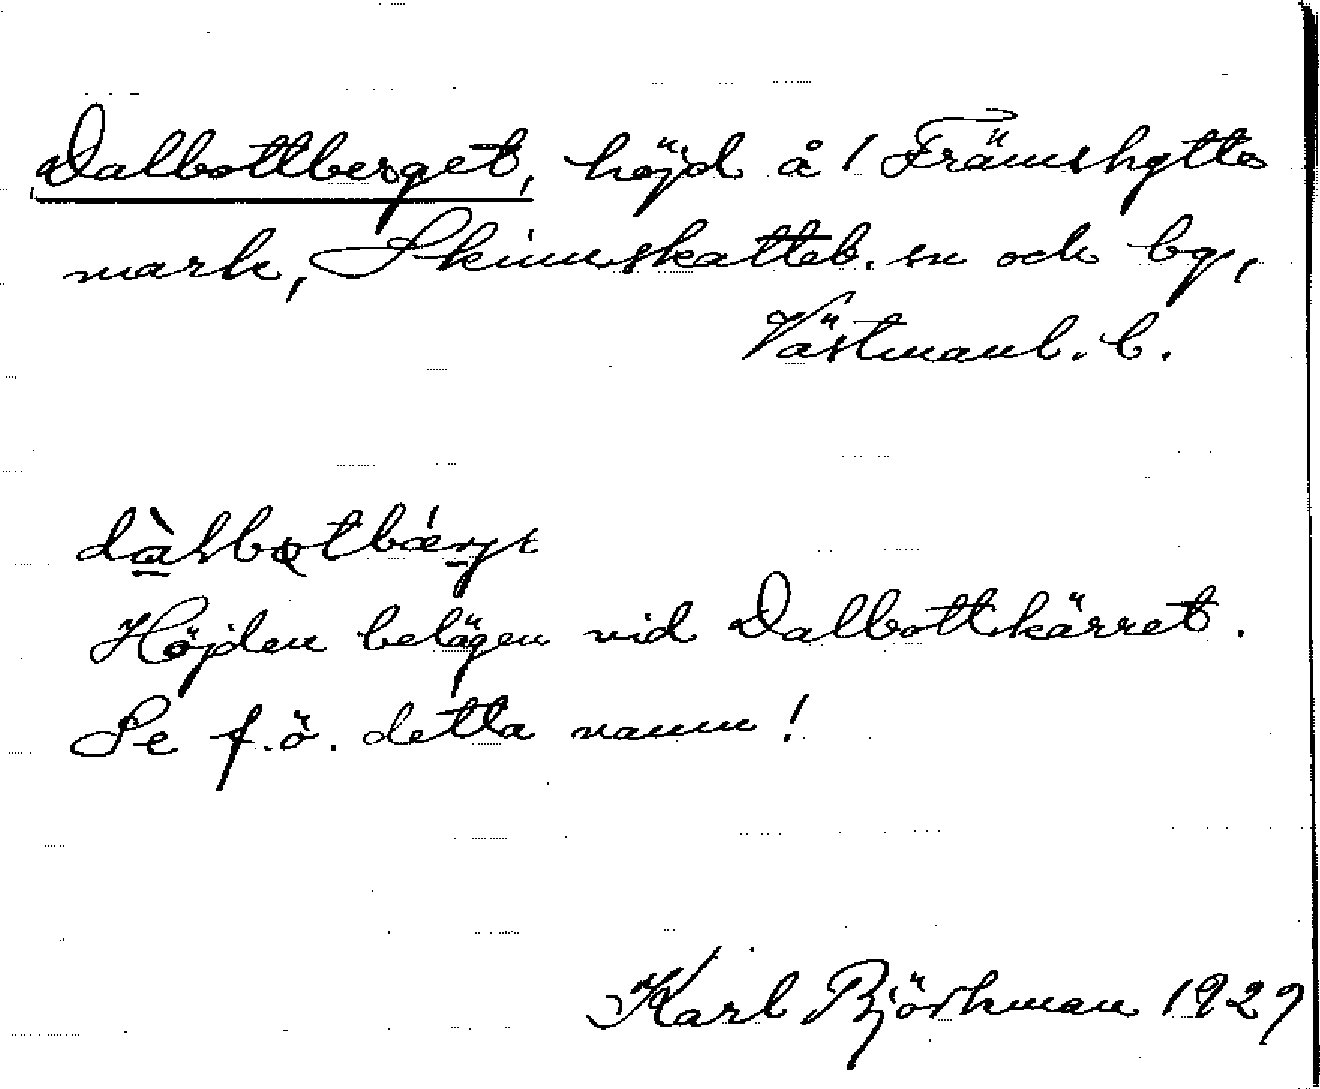 Dalbottberget, höjd å / Främshytte
mark, Skinnskatteb. sn och bg,
Västmanl. l.
dàlbo̢tbǽrjt
Höjden belägen vid Dalbottkärret.
Se f.ö. detta namn!
Karl Björkman 1927